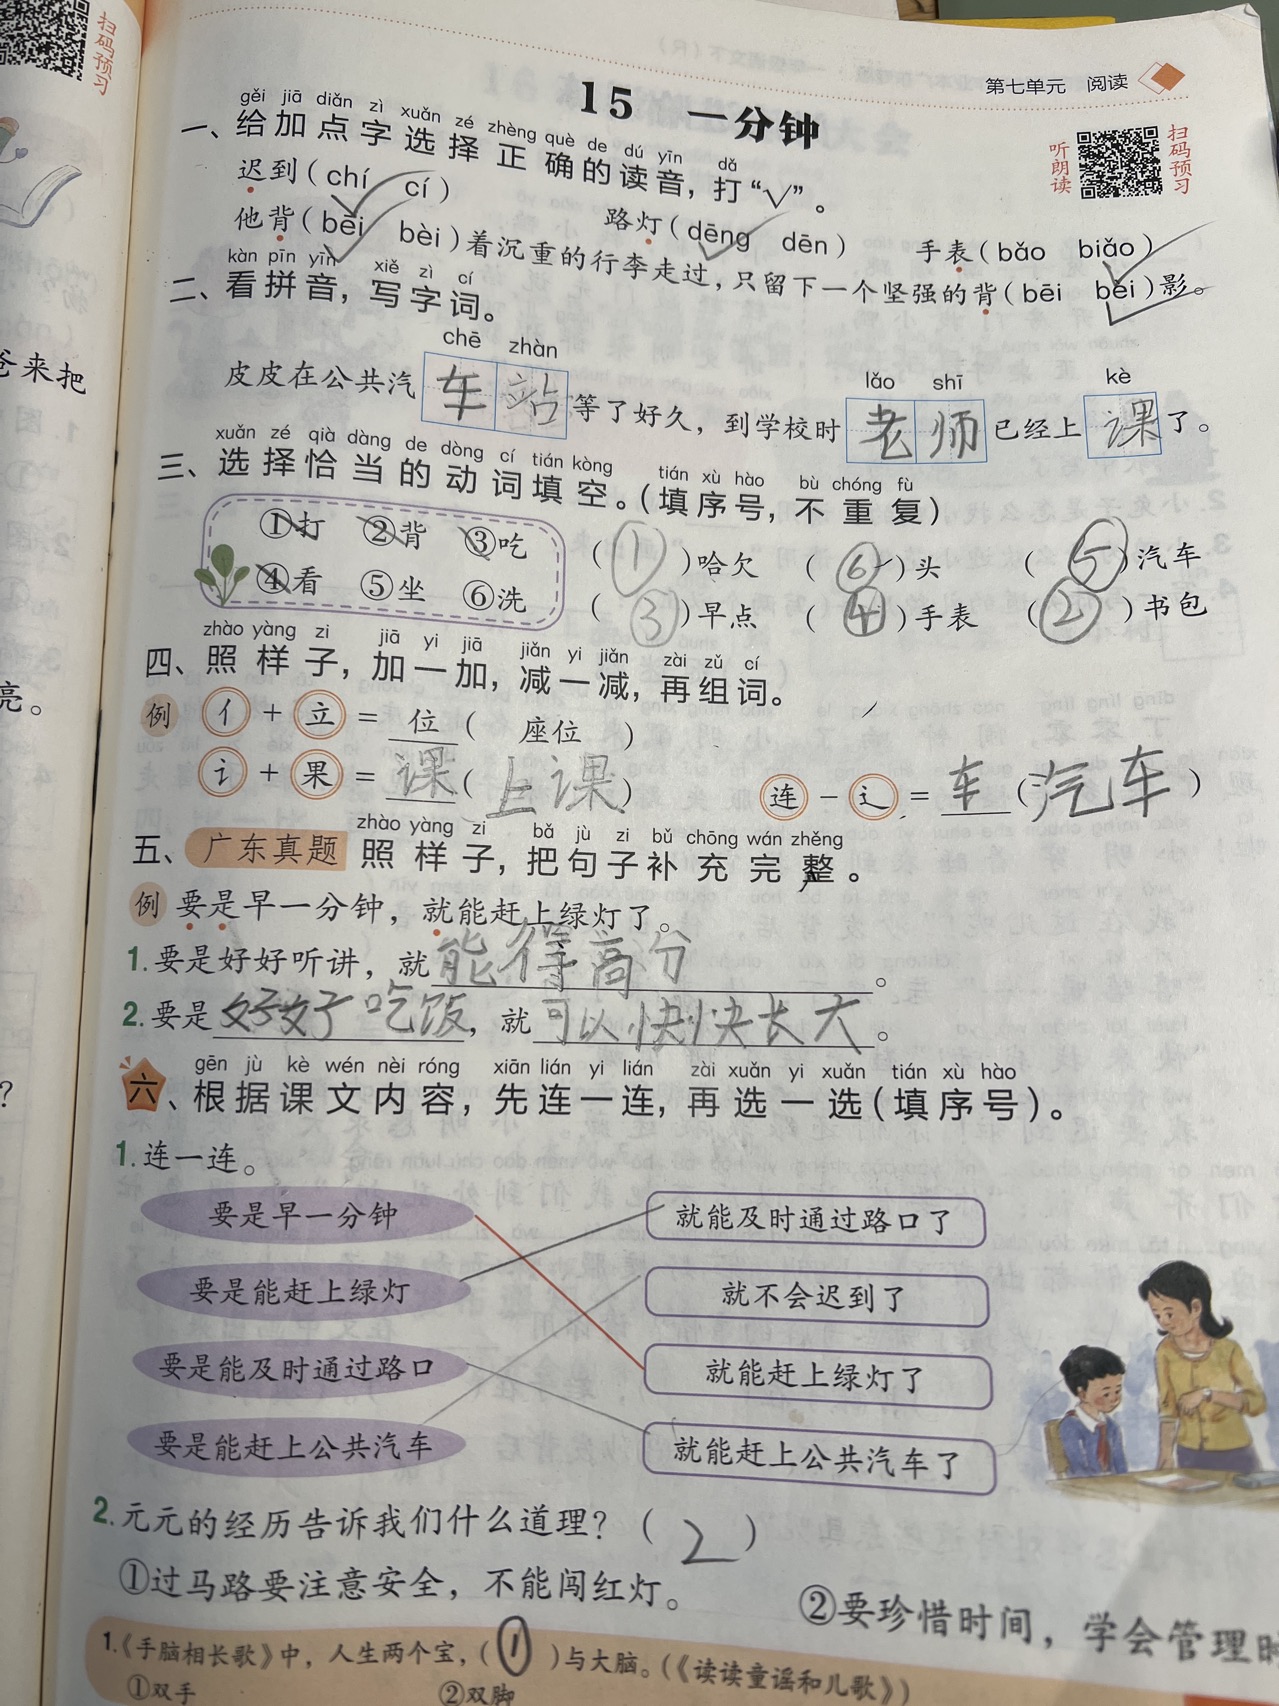 扫码预习
第七单元 阅读
15 一分钟
听朗读
扫码预习
gěi jiā diǎn zì xuǎn zé zhèng què de dú yīn dǎ
一、给加点字选择正确的读音，打“√”。
迟到（chí cí） 路灯（dēng dēn） 手表（bǎo biǎo）
他背（bēi bèi）着沉重的行李走过，只留下一个坚强的背（bēi bèi）影。
kàn pīn yīn xiě zì cí
二、看拼音，写字词。
chē zhàn lǎo shī kè
皮皮在公共汽车站等了好久，到学校时老师已经上课了。
xuǎn zé qià dàng de dòng cí tián kòng tián xù hào bù chóng fù
三、选择恰当的动词填空。（填序号，不重复）
①打 ②背 ③吃
④看 ⑤坐 ⑥洗
（①）哈欠 （⑥）头 （⑤）汽车
（③）早点 （④）手表 （②）书包
zhào yàng zi jiā yi jiā jiǎn yi jiǎn zài zǔ cí
四、照样子，加一加，减一减，再组词。
例 亻+立=位（座位）
讠+果=课（上课） 连-辶=车（汽车）
zhào yàng zi bǎ jù zi bǔ chōng wán zhěng
五、广东真题 照样子，把句子补充完整。
例 要是早一分钟，就能赶上绿灯了。
1.要是好好听讲，就能得高分。
2.要是好好吃饭，就可以快快长大。
gēn jù kè wén nèi róng xiān lián yi lián zài xuǎn yi xuǎn tián xù hào
六、根据课文内容，先连一连，再选一选（填序号）。
1.连一连。
要是早一分钟 就能及时通过路口了
要是能赶上绿灯 就不会迟到了
要是能及时通过路口 就能赶上绿灯了
要是能赶上公共汽车 就能赶上公共汽车了
2.元元的经历告诉我们什么道理？（2）
①过马路要注意安全，不能闯红灯。 ②要珍惜时间，学会管理时
1.《手脑相长歌》中，人生两个宝，（①）与大脑。（《读读童谣和儿歌》）
①双手 ②双脚
爸来把
亮。
？